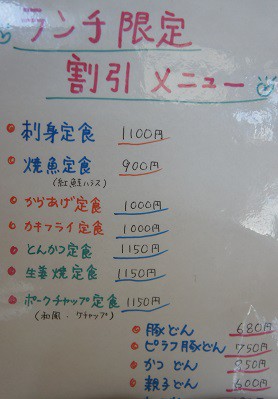 ランチ限定
割引メニュー
刺身定食 1100円
焼魚定食 900円
(紅鮭ハラス)
からあげ定食 1000円
カキフライ定食 1000円
とんかつ定食 1150円
生姜焼定食 1150円
ポークチャップ定食 1150円
(和風・ケチャップ)
豚どん 680円
ピラフ豚どん 750円
かつどん 850円
親子どん 600円